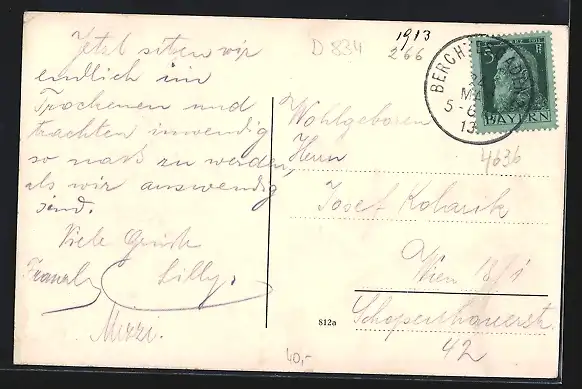 Jetzt sitzen wir
endlich im
Trockenen und
trachten inwendig
so naß zu werden,
als wir auswendig
sind.
Viele Grüße
Franzl Lilly
Mizzi.
D 834
1913
266
BERCHTESGADEN
24
MAI
5-6
13
5
BAYERN
4636
Wohlgeboren
Herrn
Josef Kolarik
Wien 18/1
Schopenhauerstr.
42
812a
40,-